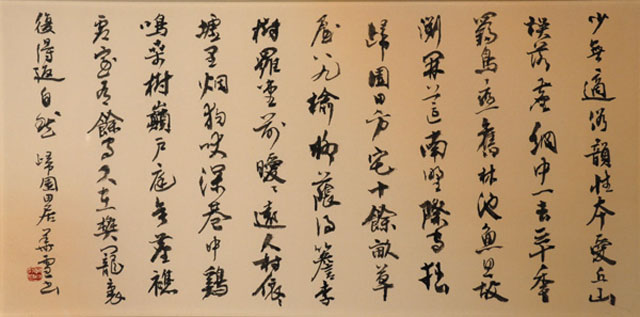 少無適俗韻性本愛丘山
誤落塵網中一去三十年
羈鳥戀舊林池魚思故
淵開荒南野際守拙
歸園田方宅十餘畝草
屋八九榆柳蔭後簷李
樹羅堂前曖〻遠人村依〻
墟里烟狗吠深巷中鷄
鳴桑樹巔戶庭無塵襍
虛室有餘閑久在樊籠裏
復得返自然 歸園田居